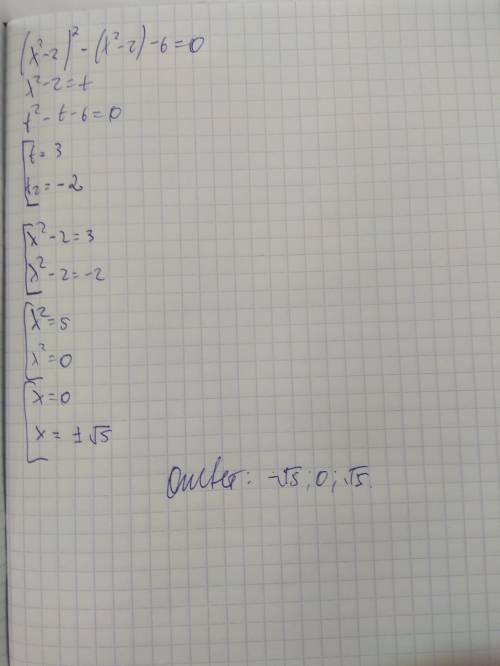 (x²-2)² - (x²-2) -6=0
x²-2=t
t² - t - 6=0
t = 3
t₂ = -2
x²-2=3
x²-2=-2
x²=5
x²=0
x=0
x= ±√5
Ответ: -√5; 0; √5.